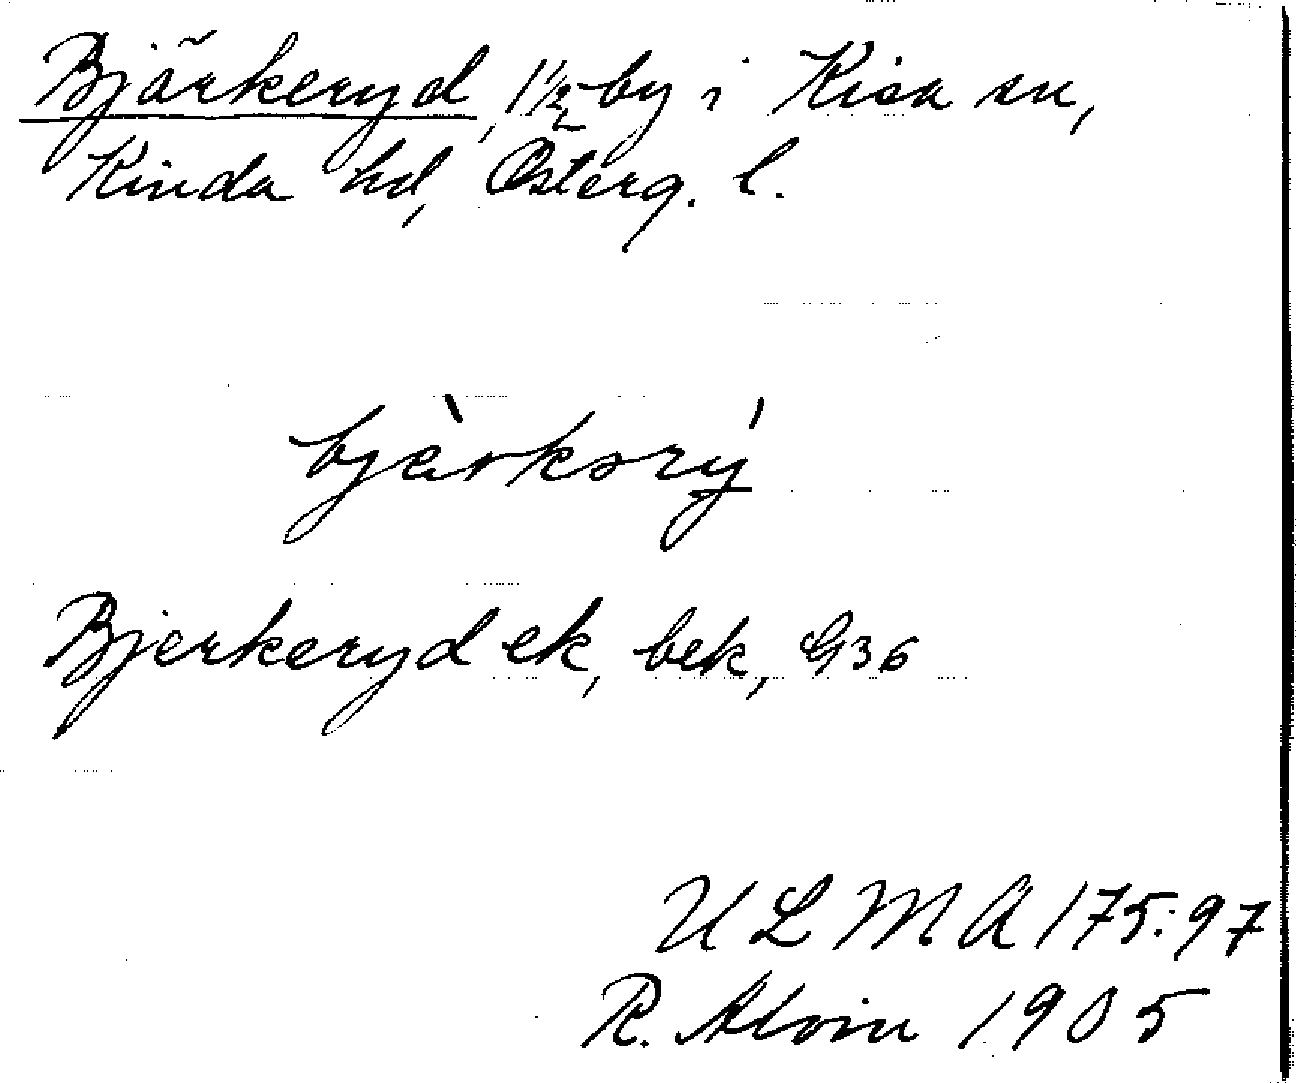 Bjärkeryd, 1 1/2 by i Kisa sn,
Kinda hd, Österg. l.
bjàrkərý
Bjerkeryd ek, bek, G36
ULMA 175:97
R. Alvin 1905